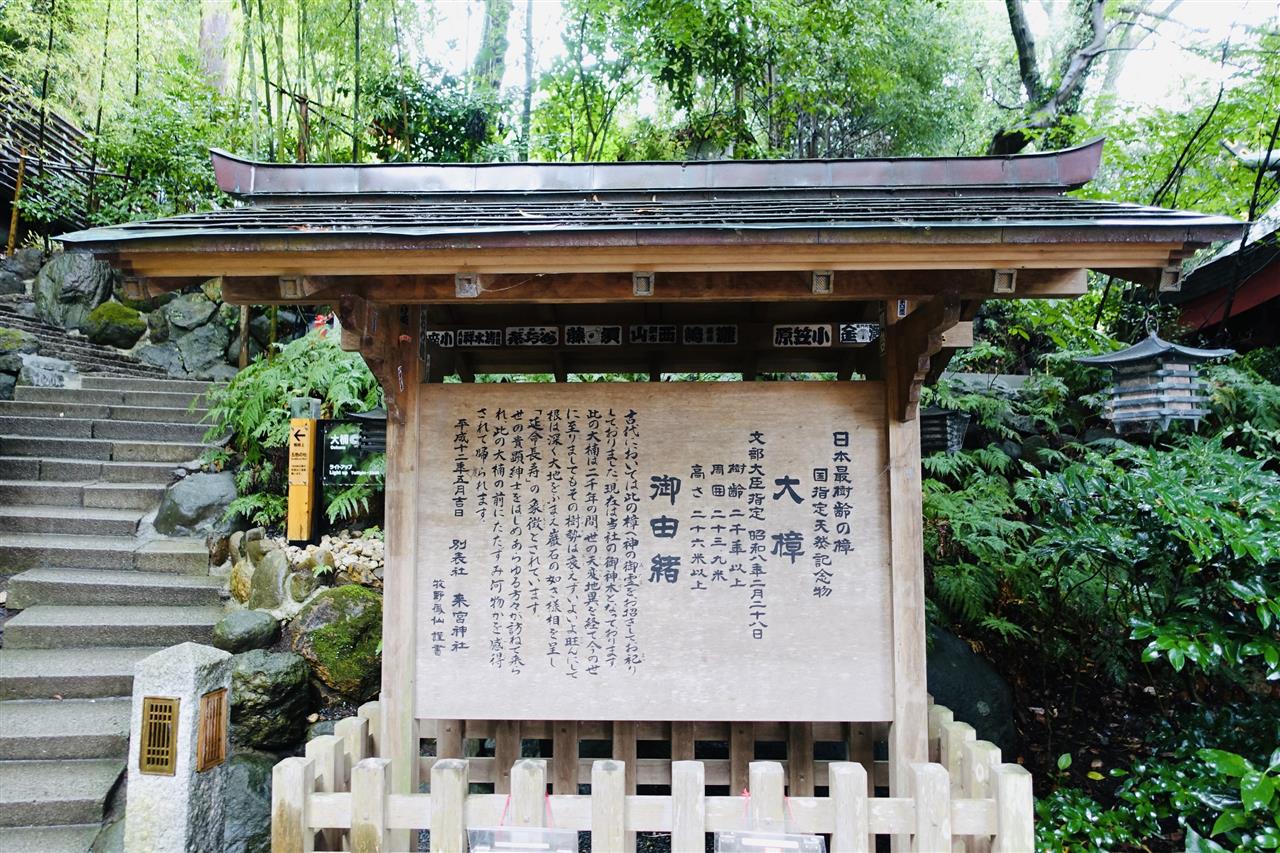 日本最樹齢の樟
国指定天然記念物
大樟
文部大臣指定 昭和八年二月二十八日
樹齢 二千年以上
周囲 二十三九米
高さ 二十六米以上
御由緒
古代においては此の樟へ神の御霊をお招きしてお祀り
しておりました現在は当社の御神木となっております
此の大楠は二千年の間世の天変地異を経て今の世
に至りましてもその樹勢は衰えずいよいよ旺んにして
根は深く大地をふまえ巌石の如き様相を呈し
「延命長寿」の象徴とされています。
世の貴顕紳士をはじめあらゆる方々が訪ねて来ら
れ此の大楠の前にたたずみ何物かを感得
されて帰られます。
平成十二年五月吉日 別表社 来宮神社
牧野風仙 謹書
小笠原
西山
大楠
ライトアップ
Light up